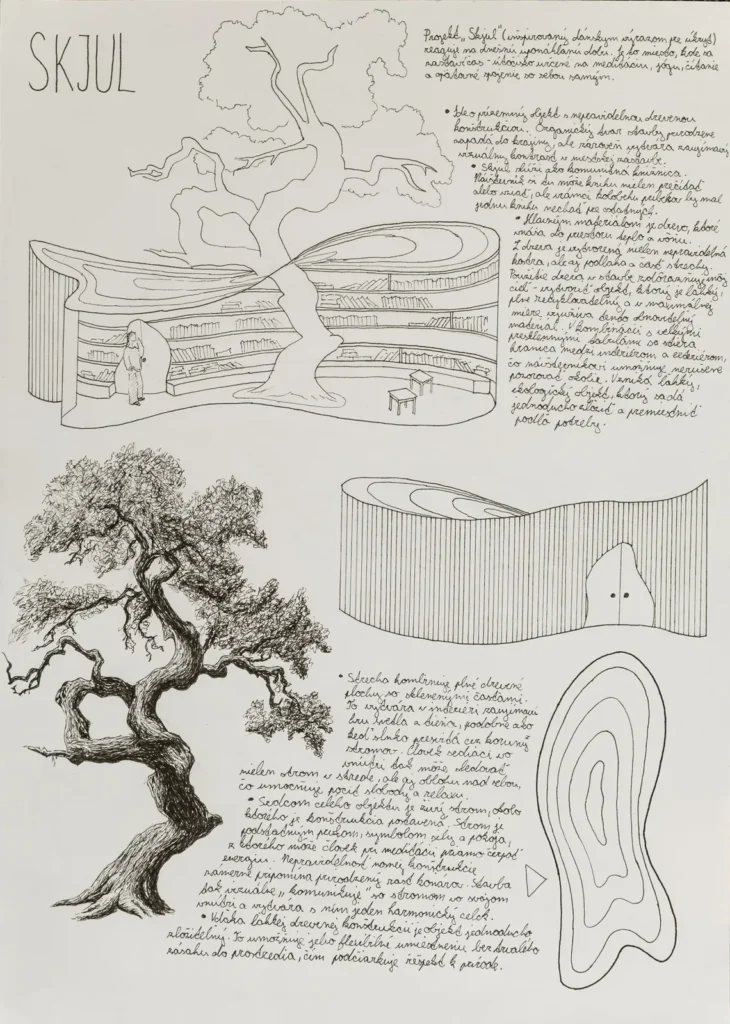 SKJUL
Projekt „Skjul" (inšpirovaný dánskym výrazom pre úkryt)
reaguje na dnešnú uponáhľanú dobu. Je to miesto, kde sa
zastaví čas - útočisko určené na meditáciu, jógu, čítanie
a opätovné spojenie so sebou samým.
• Ide o prízemný objekt s nepravidelnou drevenou
konštrukciou. Organický tvar stavby prirodzene
zapadá do krajiny, ale zároveň vytvára zaujímavý
vizuálny kontrast v mestskej zástavbe.
• Skjul slúži ako komunitná knižnica.
Návštevník si tu môže knihu nielen prečítať
alebo vziať, ale v rámci kolobehu príbehov by mal
jednu knihu nechať pre ostatných.
• Hlavným materiálom je drevo, ktoré
vnáša do priestoru teplo a vôňu.
Z dreva je vytvorená nielen nepravidelná
kostra, ale aj podlaha a časť strechy.
Použitie dreva v stavbe zdôrazňuje môj
cieľ - vytvoriť objekt, ktorý je ľahký,
plne recyklovateľný a v maximálnej
miere využíva tento obnoviteľný
materiál. V kombinácii s veľkými
presklennými tabuľami sa stiera
hranica medzi interiérom a exteriérom,
čo návštevníkov umožňuje nerušene
pozorovať okolie. Vzniká ľahký,
ekologický objekt, ktorý sa dá
jednoducho zložiť a premiestniť
podľa potreby.
• Strecha kombinuje plné drevené
plochy so sklenenými časťami.
To vytvára v interiéri zaujímavú
hru svetla a tieňa, podobne ako
keď slnko presvitá cez koruny
stromov. Človek sediaci vo
vnútri tak môže sledovať
nielen strom v strede, ale aj oblohu nad sebou,
čo umocňuje pocit slobody a relaxu.
• Srdcom celého objektu je živý strom, okolo
ktorého je konštrukcia postavená. Strom je
podstatným prvkom, symbolom sily a pokoja,
z ktorého môže človek pri meditácii priamo čerpať
energiu. Nepravidelnosť nosnej konštrukcie
zámerne pripomína prirodzený rast konárov. Stavba
tak vizuálne „komunikuje" so stromom vo svojom
vnútri a vytvára s ním jeden harmonický celok.
• Vďaka ľahkej drevenej konštrukcii je objekt jednoducho
zložiteľný. To umožňuje jeho flexibilné umiestnenie bez trvalého
zásahu do prostredia, čím podčiarkuje rešpekt k prírode.